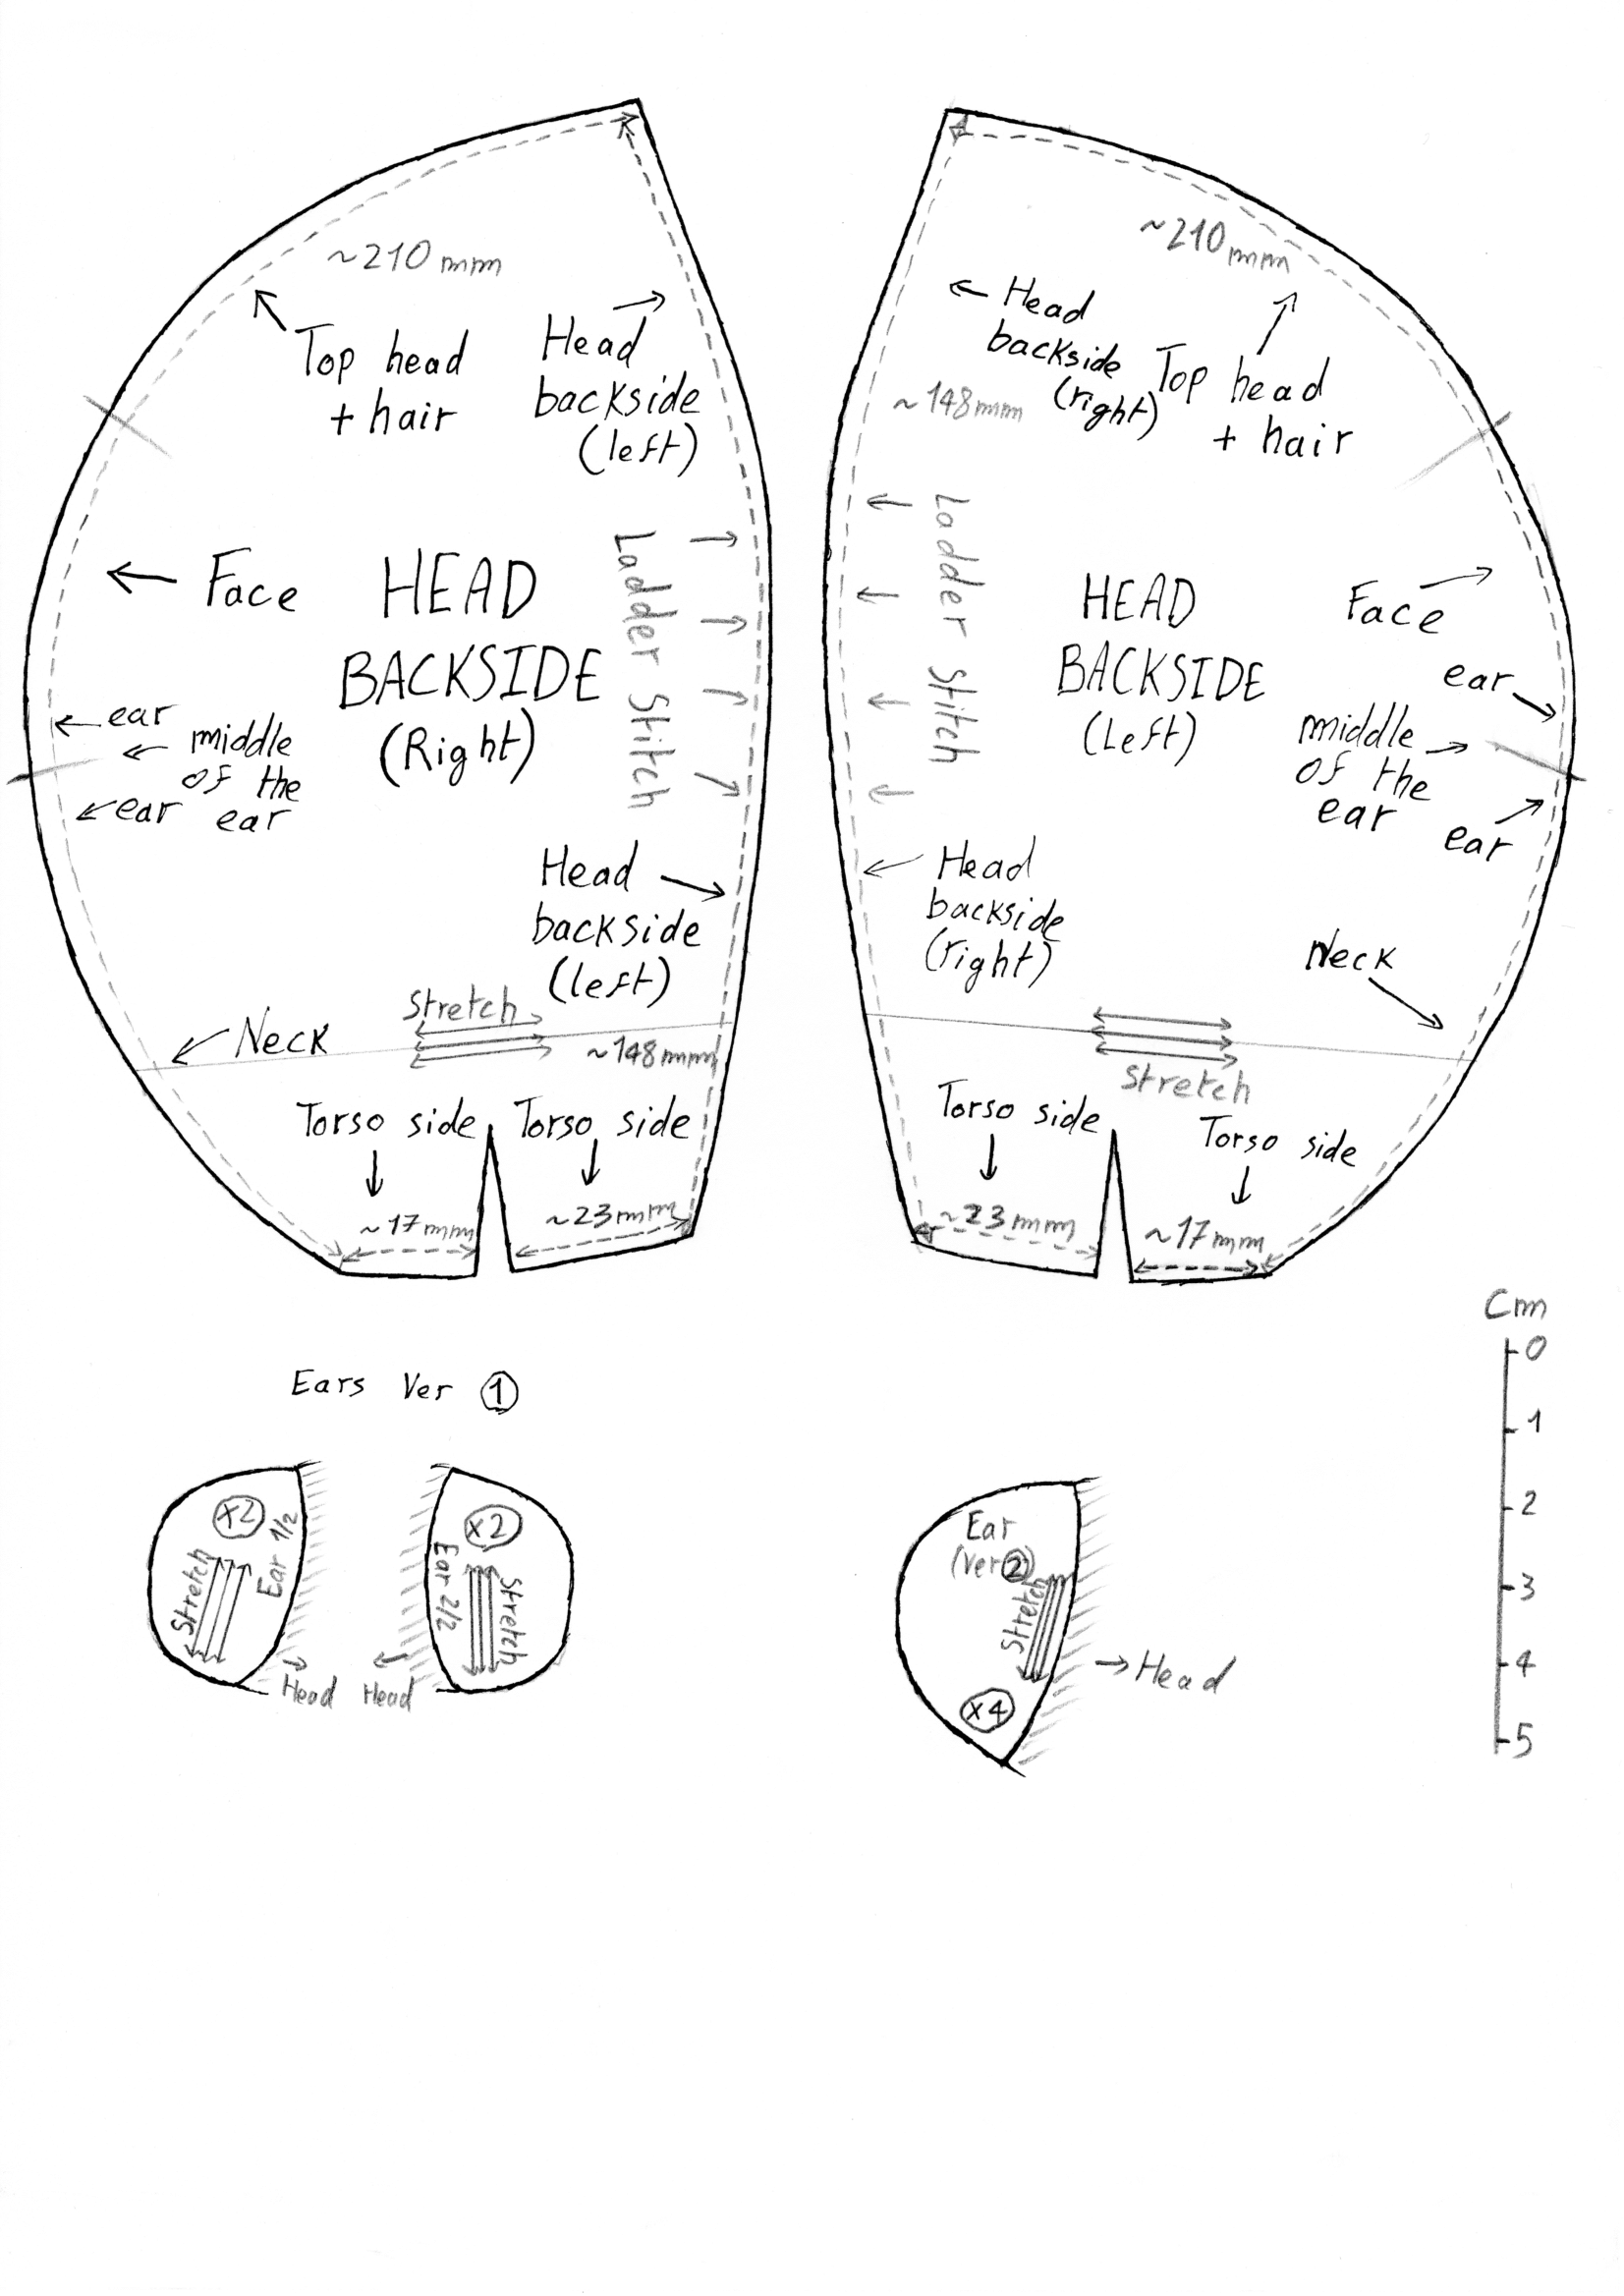 ~210 mm
Top head
+ hair
Head
backside
(left)
Face
HEAD
BACKSIDE
(Right)
Ladder Stitch
ear
middle
of the
ear
ear
Head
backside
(left)
Stretch
Neck
~148mm
Torso side
Torso side
~17mm
~23mm
~210mm
Head
backside
(right)
~148mm
Top head
+ hair
Ladder Stitch
HEAD
BACKSIDE
(Left)
Face
ear
middle
of the
ear
ear
Head
backside
(right)
Neck
Stretch
Torso side
Torso side
~23mm
~17mm
Cm
0
1
2
3
4
5
Ears Ver 1
x2
Ear 1/2
Stretch
Head
x2
Ear 2/2
Stretch
Head
Ear
(Ver 2)
Stretch
x4
Head